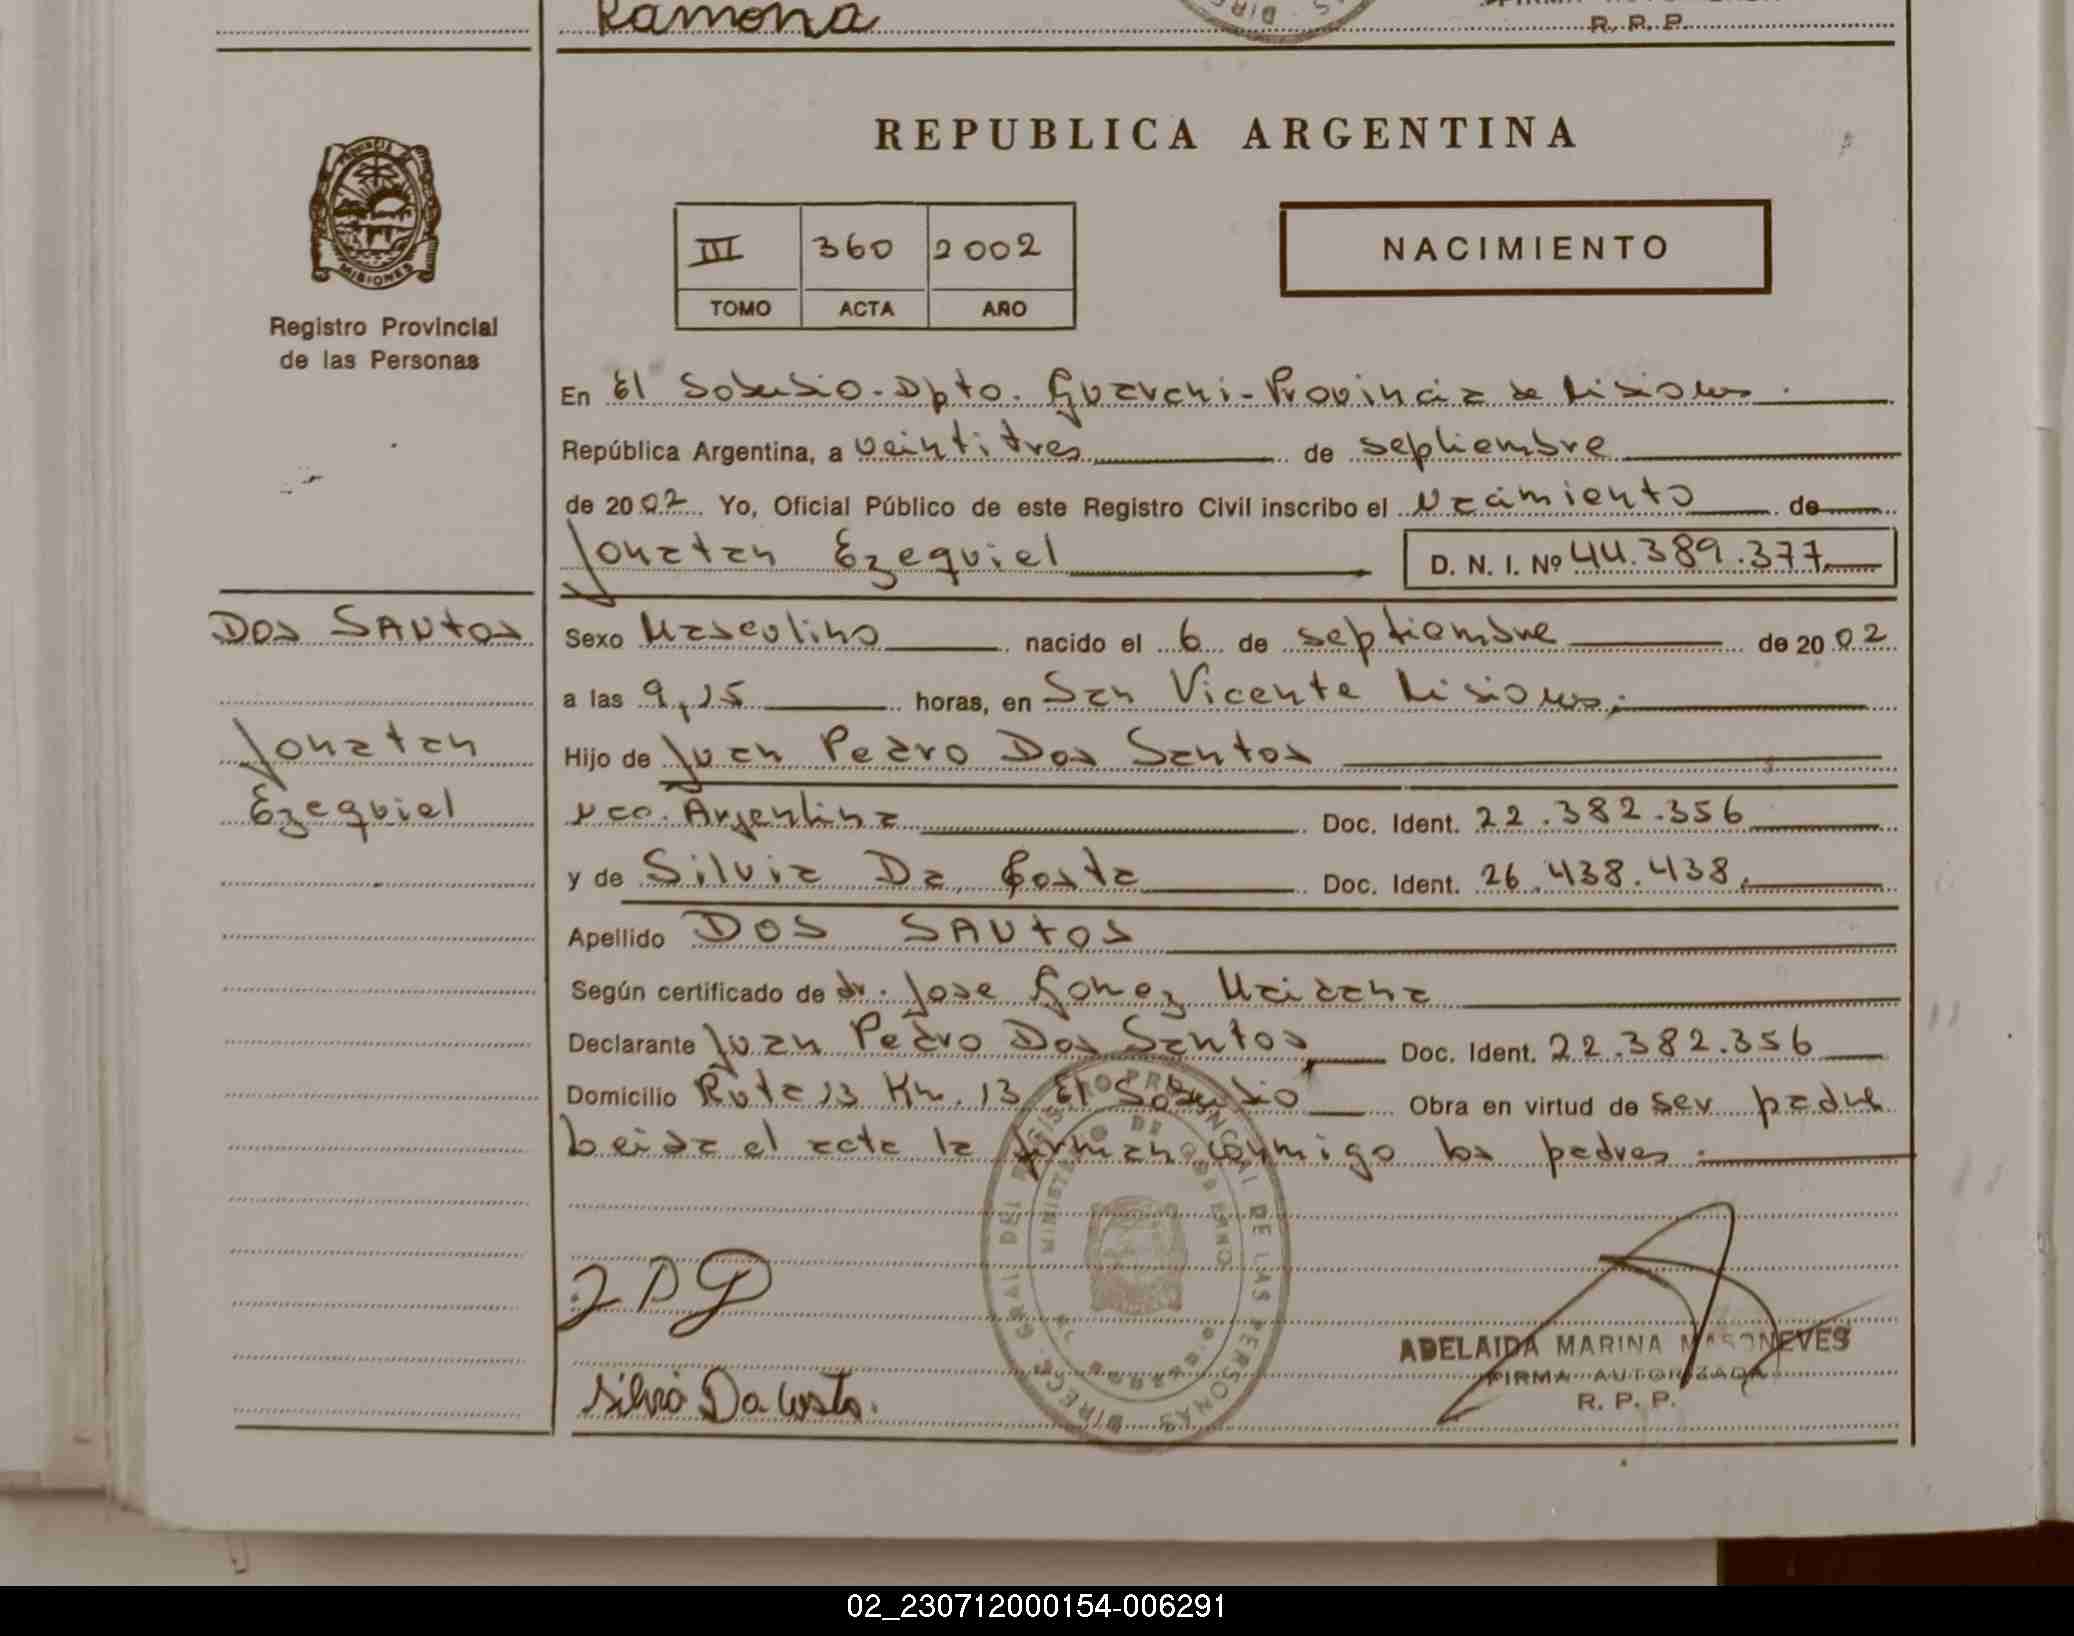 Ramona
R. P. P.
REPUBLICA ARGENTINA
PROVINCIA DE
MISIONES
Registro Provincial
de las Personas
III 360 2002
TOMO ACTA AÑO
NACIMIENTO
En El Soberbio - Dpto. Guarani - Provincia de Misiones.
República Argentina, a veintitres de septiembre
de 2002 Yo, Oficial Público de este Registro Civil inscribo el nacimiento de
Jonatan Ezequiel D. N. I. Nº 44.389.377
DOS SANTOS
Jonatan
Ezequiel
Sexo Masculino nacido el 6 de septiembre de 2002
a las 9,15 horas, en San Vicente Misiones.
Hijo de Juan Pedro Dos Santos
nco. Argentina Doc. Ident. 22.382.356
y de Silvia Da Costa Doc. Ident. 26.438.438.
Apellido DOS SANTOS
Según certificado de dr. Jose Gomez Maidana
Declarante Juan Pedro Dos Santos, Doc. Ident. 22.382.356
Domicilio Ruta 13 Km. 13 El Soberbio Obra en virtud de ser padre
Leida el acta la firman conmigo los padres.
DIRECC. GRAL DEL REGISTRO PROVINCIAL DE LAS PERSONAS
MINISTERIO DE GOBIERNO
Silvia Da Costa.
ADELAIDA MARINA MASONEVES
FIRMA AUTORIZADA
R. P. P.
02_230712000154-006291